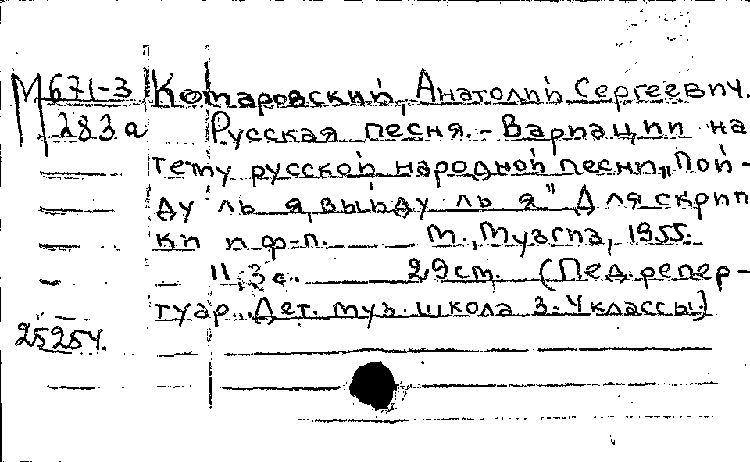 М 671-3 Комаровский, Анатолий Сергеевич.
283а Русская песня. - Вариации на
тему русской народной песни „Пой-
ду ль я, выйду ль я" Для скрип
ки и ф-п. М., Музгиз, 1955.
11, 3 с. 29 ст. (Пед. репер-
туар. Дет. муз. школа 3-4 классы)
25254.